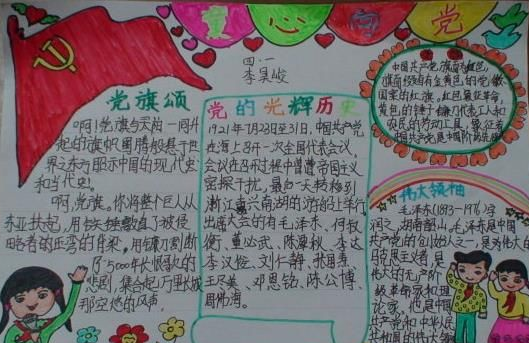 童心向党
四·一
李昊峻
党旗颂
啊!党旗与太阳一同升
起的旗帜,图腾般悬于世
界之东方昭示中国的现代史
和当代史。
啊,党旗。你将整个巨人从
东亚扶起,用长矛
略者的兵
的5000年长恨歌的
悲剧,集合起万里长城
那空阔的风声。
党的光辉历史
1921年7月23日至31日,中国共产党
在上海召开一次全国代表会议,
会议在召开过程中曾遭帝国主义
密探干扰。最后一天转移到
浙江嘉兴南湖的游船上举行
出席大会的有毛泽东、何叔
衡、董必武、陈潭秋、李达
李汉俊、刘仁静、张国焘、
王尽美、邓恩铭、陈公博、
周佛海。
中国共产党旗面为红色,
旗面缀有金黄色的党徽
图案的红旗。红色象征革命,
黄色的锤子镰刀代表工人和
农民的劳动工具,象征着
中国共产党是中国阶
伟大领袖
毛泽东(1893-1976)字
润之,湖南韶山,毛泽东是中国
共产党的创始人之一,是为伟大的
马克思主义者,是
伟大的无产阶
级革命家和
论家,他是中国
共产党和中华人民
共和国的伟大领